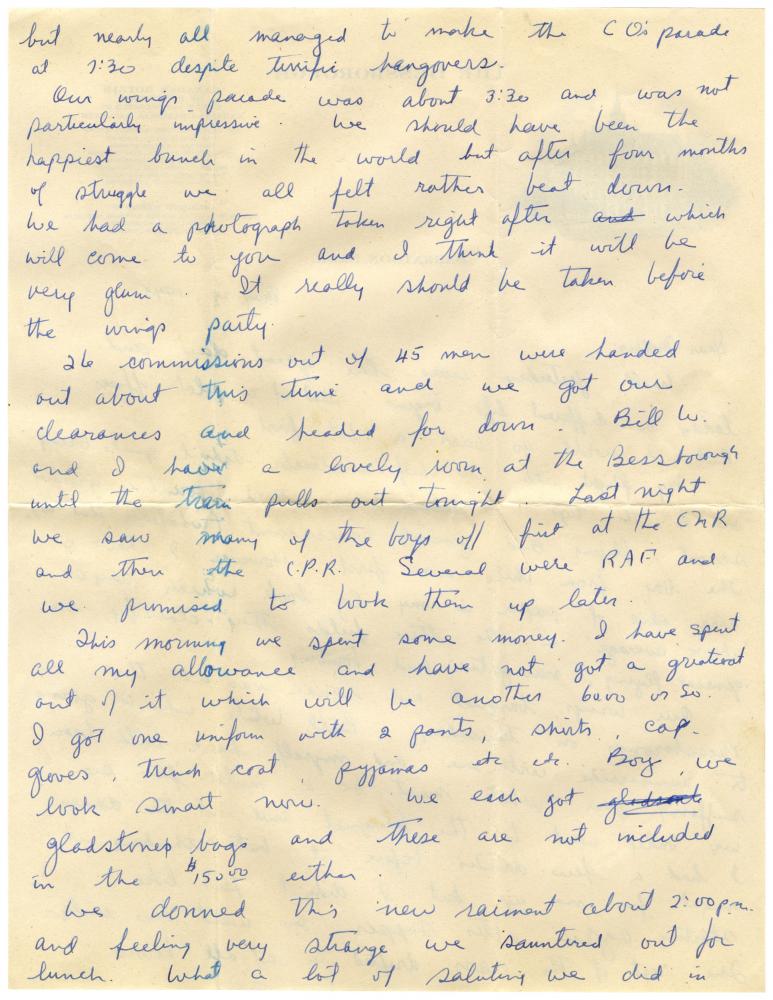 but nearly all managed to make the CO's parade
at 7:30 despite terrific hangovers.
Our wings parade was about 3:30 and was not
particularly impressive. We should have been the
happiest bunch in the world but after four months
of struggle we all felt rather beat down.
We had a photograph taken right after and which
will come to you and I think it will be
very glum. It really should be taken before
the wings party.
26 commissions out of 45 men were handed
out about this time and we got our
clearances and headed for down. Bill W.
and I have a lovely room at the Bessborough
until the train pulls out tonight. Last night
we saw many of the boys off first at the CNR
and then the C.P.R. Several were RAF and
we promised to look them up later.
This morning we spent some money. I have spent
all my allowance and have not got a greatcoat
out of it which will be another 60.00 or so.
I got one uniform with 2 pants, shirts, cap.
gloves, trench coat, pyjamas etc etc. Boy, we
look smart now. We each got
gladstones bags and these are not included
in the $150.00 either.
We donned this new raiment about 2:00 p.m.
and feeling very strange we sauntered out for
lunch. What a lot of saluting we did in